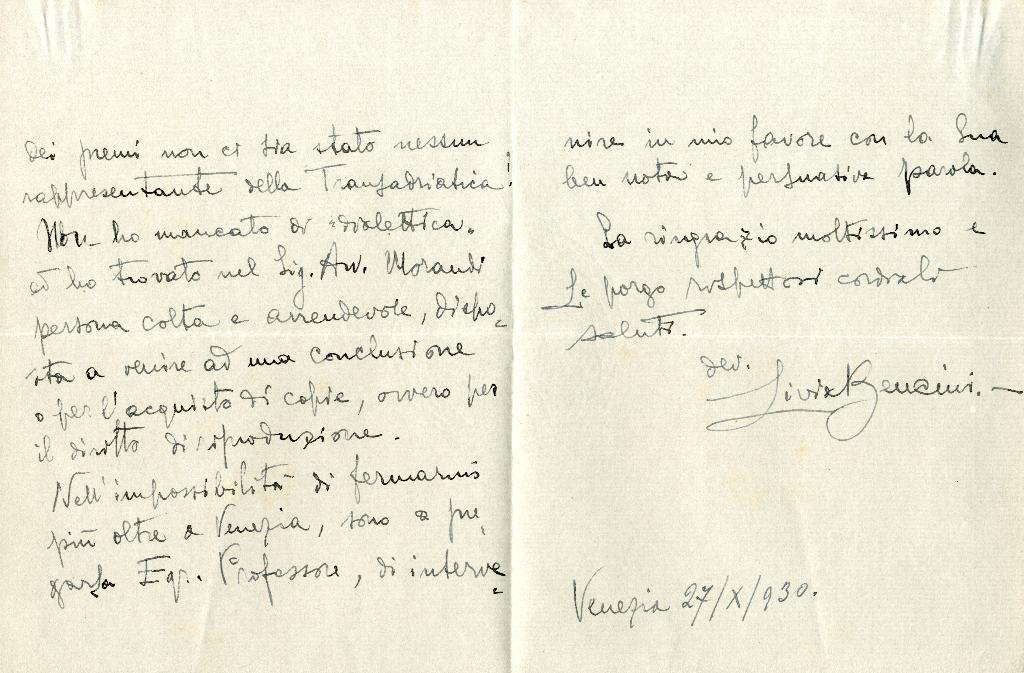 dei premi non ci sia stato nessun
rappresentante della Transadriatica!
Non ho mancato di "dialettica"
ed ho trovato nel Sig. Avv. Morandi
persona colta e arrendevole, dispo-
sta a venire ad una conclusione
o per l'acquisto di copie, ovvero per
il diritto di riproduzione.
Nell'impossibilità di fermarmi
più oltre a Venezia, sono a pre-
garLa Egr. Professore, di interve-
nire in mio favore con la Sua
ben nota e persuasiva parola.
La ringrazio moltissimo e
Le porgo rispettosi cordiali
saluti.
dev.
Livia Benzini.
Venezia 27/X/930.